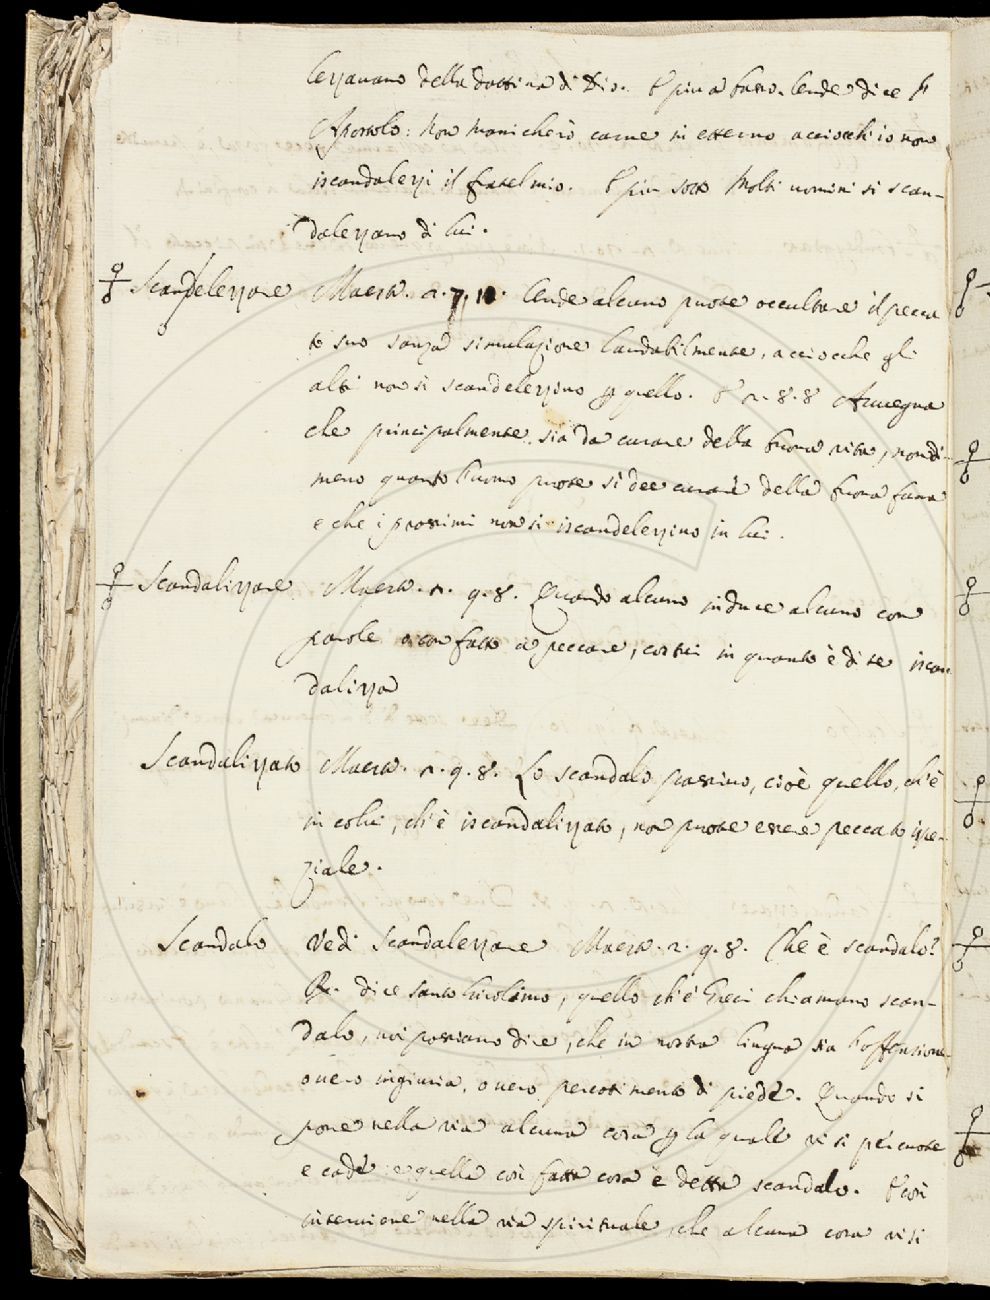 lezzavano della dottrina di Dio. E più a basso. Onde dice l'
Apostolo: Non manicherò carne in etterno acciocch' io non
iscandalezzi il fratel mio. E più sotto Molti uomini si scan-
dalezzano di lui.
Scandelezzare Maestr. 2. 7. 10. Onde alcuno puote occultare il pecca
to suo sanza simulazione laudabilmente, acciocche gli
altri non si scandelezzino p quello. E 2. 8. 8 Avvegna
che principalmente sia da curare della buona vita, nondi-
meno quanto l'uomo puote si dee curare della buona fama
e che i prossimi non si iscandelezzino in lui.
Scandalizzare Maestr. 2. 9. 8. Quando alcuno induce alcuno con
parole o con fatto a peccare, costui in quanto è di se iscan
dalizza
Scandalizzato Maestr. 2. 9. 8. Lo scandalo passivo, cioè quello, ch'è
in colui, ch'è iscandalizzato, non puote essere peccato ispe-
ziale.
Scandalo Vedi Scandalezzare Maestr. 2. 9. 8. Che è scandalo?
R. dice santo Girolamo, quello ch'e' Greci chiamano scan-
dalo, noi possiamo dire, che in nostra lingua sia l'offensione
ovvero ingiuria, ovvero percotimento di piede. Quando si
pone nella via alcuna cosa p la quale vi si percuote
e cade: e quella così fatta cosa è detta scandalo. E così
interviene nella via spirituale, che alcuna cosa vi si